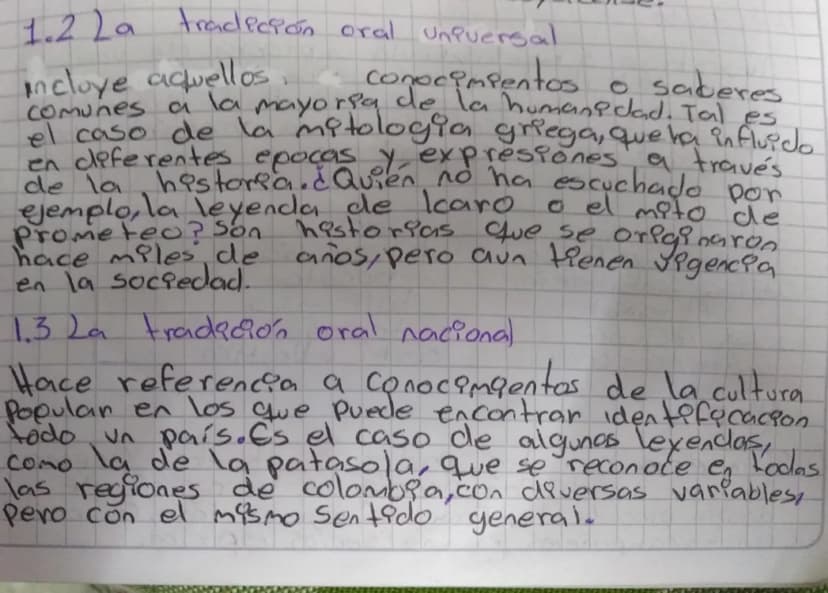 1.2 La tradición oral universal
incluye aquellos conocimientos o saberes
comunes a la mayoría de la humanidad. Tal es
el caso de la mitología griega, que ha influido
en diferentes epocas y expresiones a través
de la historia. ¿Quién no ha escuchado por
ejemplo, la leyenda de Icaro o el mito de
Prometeo? Son historias que se originaron
hace miles de años, pero aun tienen vigencia
en la sociedad.
1.3 La tradición oral nacional
Hace referencia a conocimientos de la cultura
Popular en los que puede encontrar identificacion
todo un país. Es el caso de algunas leyendas,
como la de la patasola, que se reconoce en todas
las regiones de colombia, con diversas variables,
pero con el mismo sentido general.